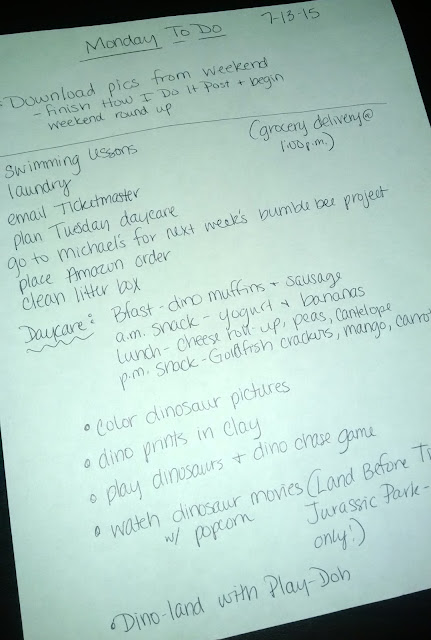 Monday To Do
7-13-15
Download pics from weekend
- finish How I Do It Post + begin
weekend round up
(grocery delivery@
1:00 p.m.)
swimming lessons
laundry
email Ticketmaster
plan Tuesday daycare
go to michael's for next week's bumble bee project
place Amazon order
clean litter box
Daycare: Bfast - dino muffins + sausage
a.m. snack - yogurt + bananas
lunch - cheese roll-up, peas, cantelope
p.m. snack - Goldfish crackers, mango, carrot
• color dinosaur pictures
• dino prints in clay
• play dinosaurs + dino chase game
• watch dinosaur movies (Land Before Ti
w/ popcorn Jurassic Park -
only!)
• Dino-land with Play-Doh